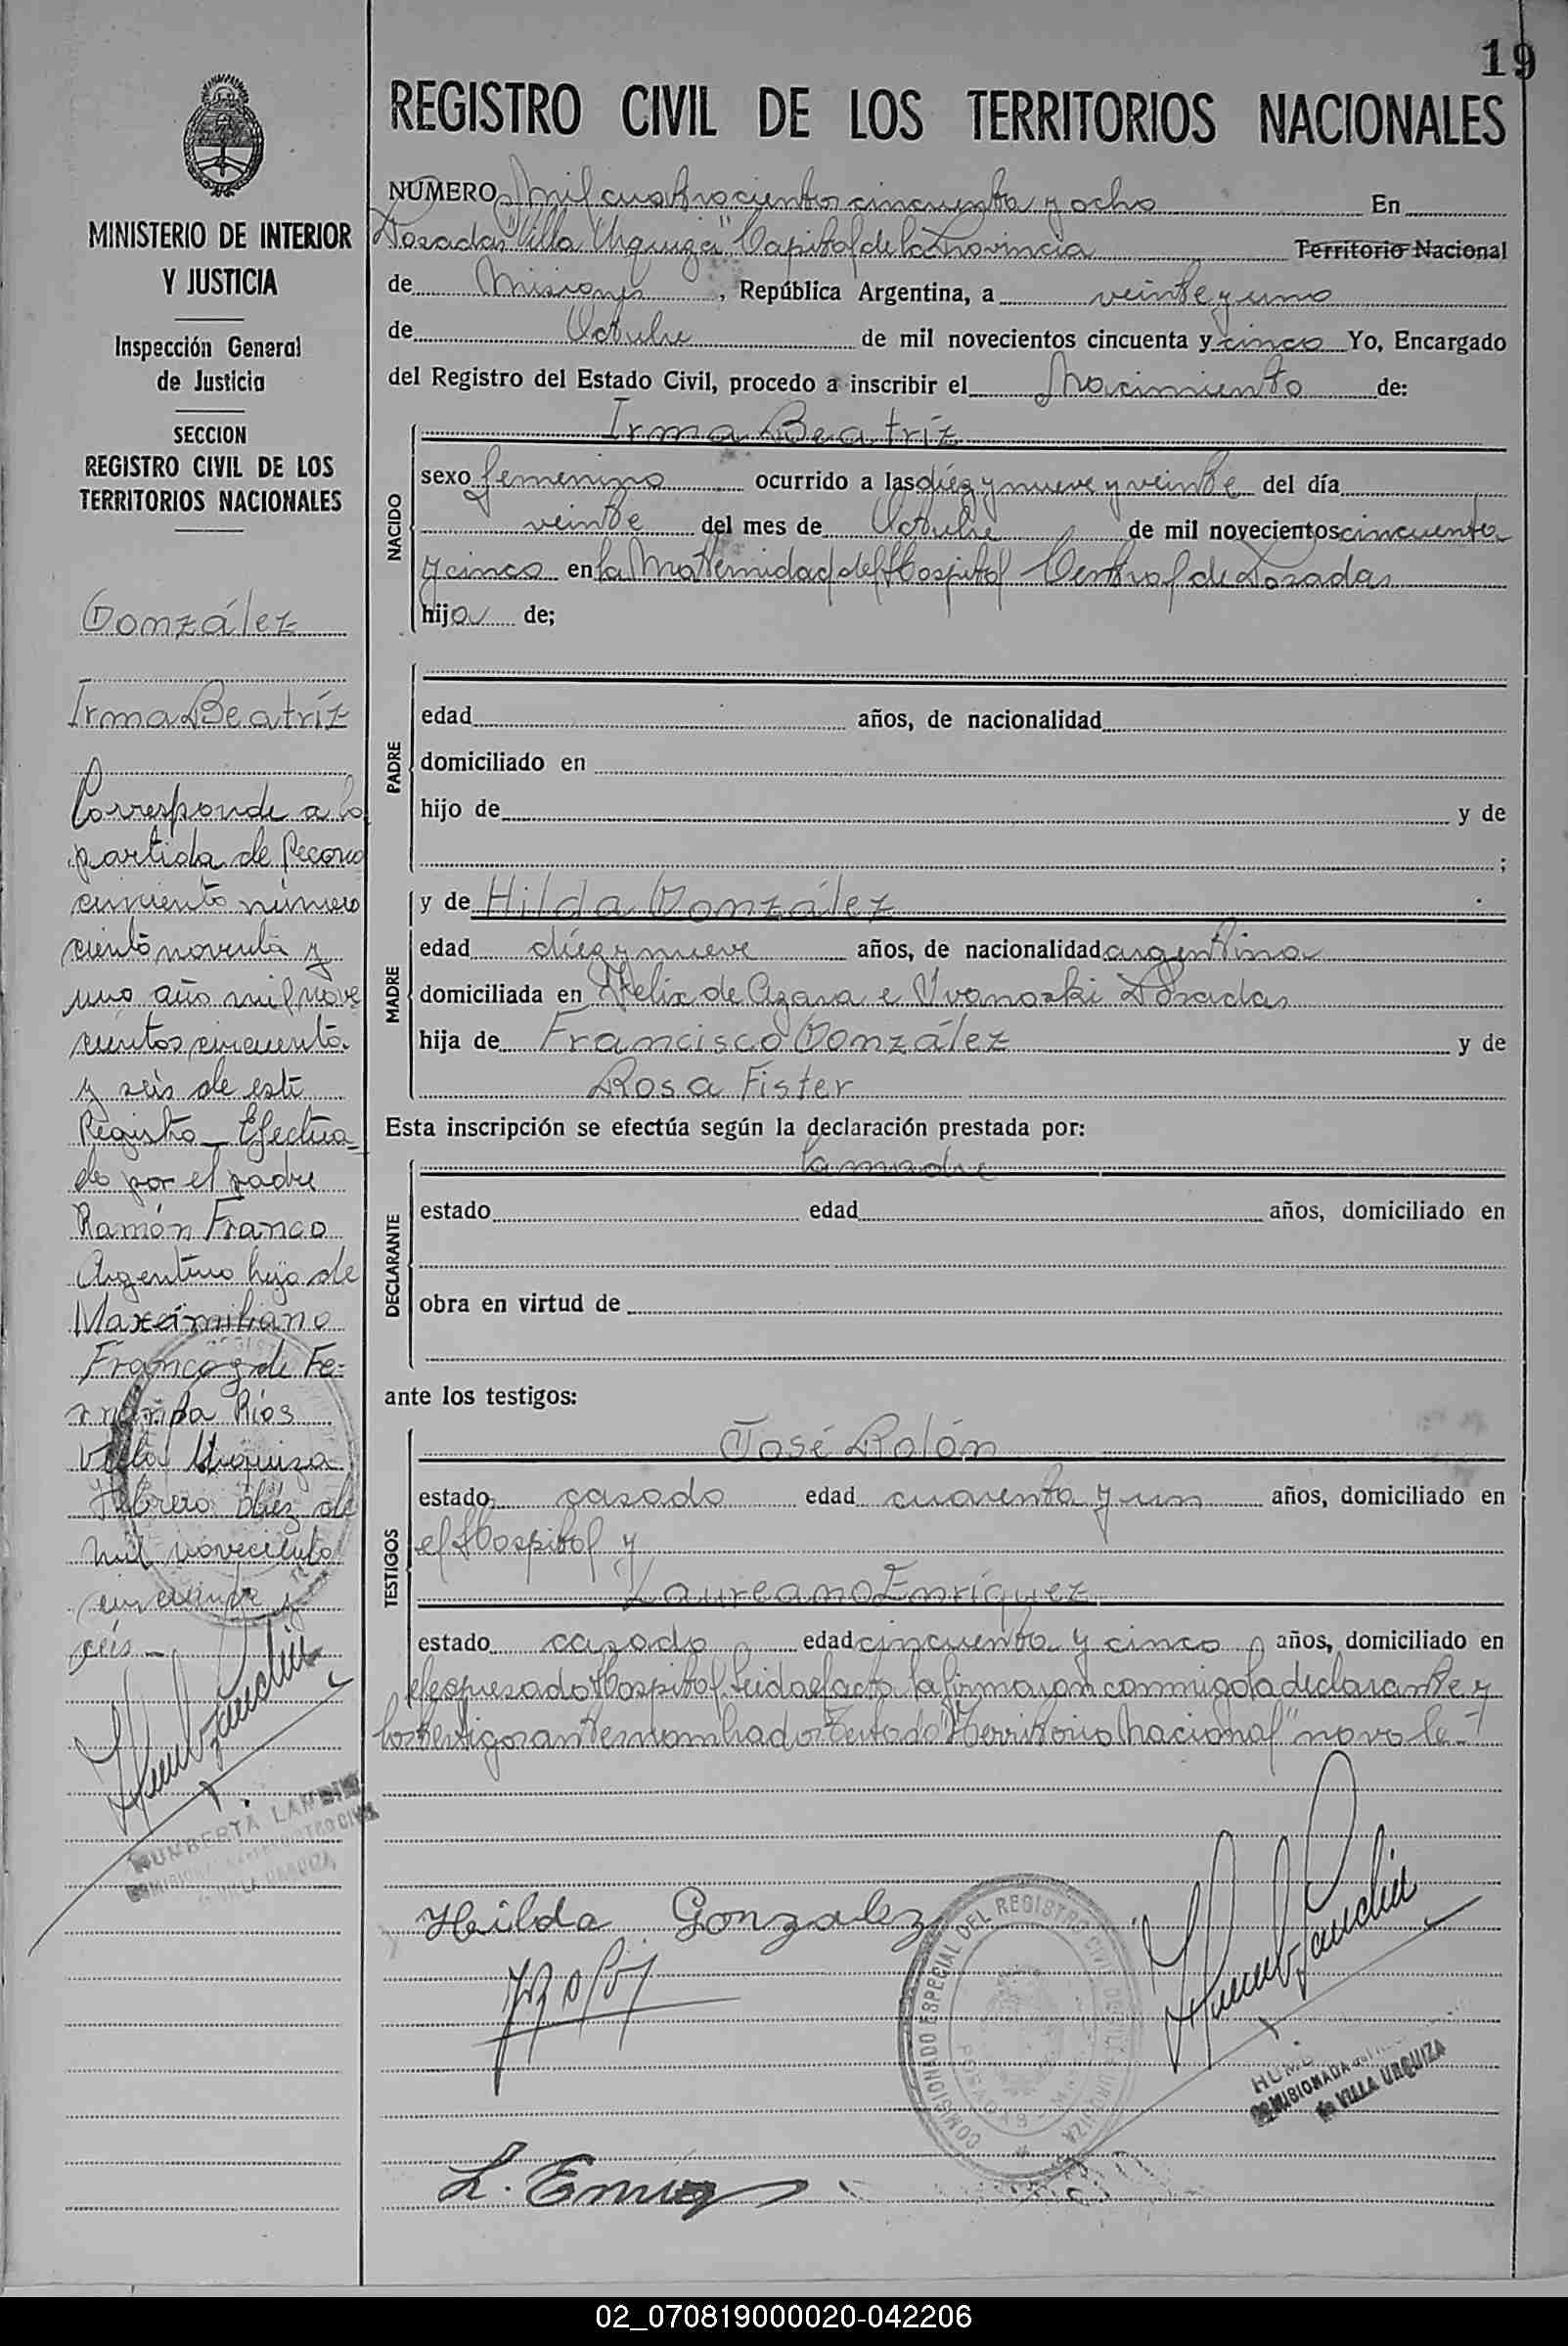 19
REGISTRO CIVIL DE LOS TERRITORIOS NACIONALES
MINISTERIO DE INTERIOR
Y JUSTICIA
Inspección General
de Justicia
SECCION
REGISTRO CIVIL DE LOS
TERRITORIOS NACIONALES
González
Irma Beatríz
Corresponde a la
partida de Recono
cimiento número
ciento noventa y
uno año mil nove
cientos cincuenta
y seis de este
Registro - Efectua-
do por el padre
Ramón Franco
Argentino hijo de
Maxcimiliano
Franco y de Fe-
Ríos
Villa Urquiza
Febrero diez de
mil novecientos
cincuenta y
seis -
HUMBERTA LANDIN
VILLA URQUIZA
NUMERO mil cuatrocientos cincuenta y ocho En
Posadas "Villa Urquiza" Capital de la Provincia Territorio Nacional
de Misiones, República Argentina, a veinte y uno
de Octubre de mil novecientos cincuenta y cinco Yo, Encargado
del Registro del Estado Civil, procedo a inscribir el Nacimiento de:
NACIDO
Irma Beatríz
sexo femenino ocurrido a las diéz y nueve y veinte del día
veinte del mes de Octubre de mil novecientos cincuenta
y cinco en la Maternidad del Hospital Central de Posadas
hija de;
PADRE
edad años, de nacionalidad
domiciliado en
hijo de y de
;
MADRE
y de Hilda González
edad diéz y nueve años, de nacionalidad argentina
domiciliada en Felix de Azara e Ivanoski Posadas
hija de Francisco González y de
Rosa Fister
Esta inscripción se efectúa según la declaración prestada por:
DECLARANTE
la madre
estado edad años, domiciliado en
obra en virtud de
ante los testigos:
TESTIGOS
José Rolón
estado casado edad cuarenta y un años, domiciliado en
el Hospital y
Laureano Enríquez
estado casado edad cincuenta y cinco años, domiciliado en
el expresado Hospital. Leida el acta la firmaron conmigo la declarante y
los testigos antes nombrados Testado "Territorio Nacional" no vale.-
Hilda Gonzalez
COMISIONADO ESPECIAL DEL REGISTRO CIVIL
URQUIZA
COMISIONADA
de VILLA URQUIZA
L. Enriq
02_070819000020-042206